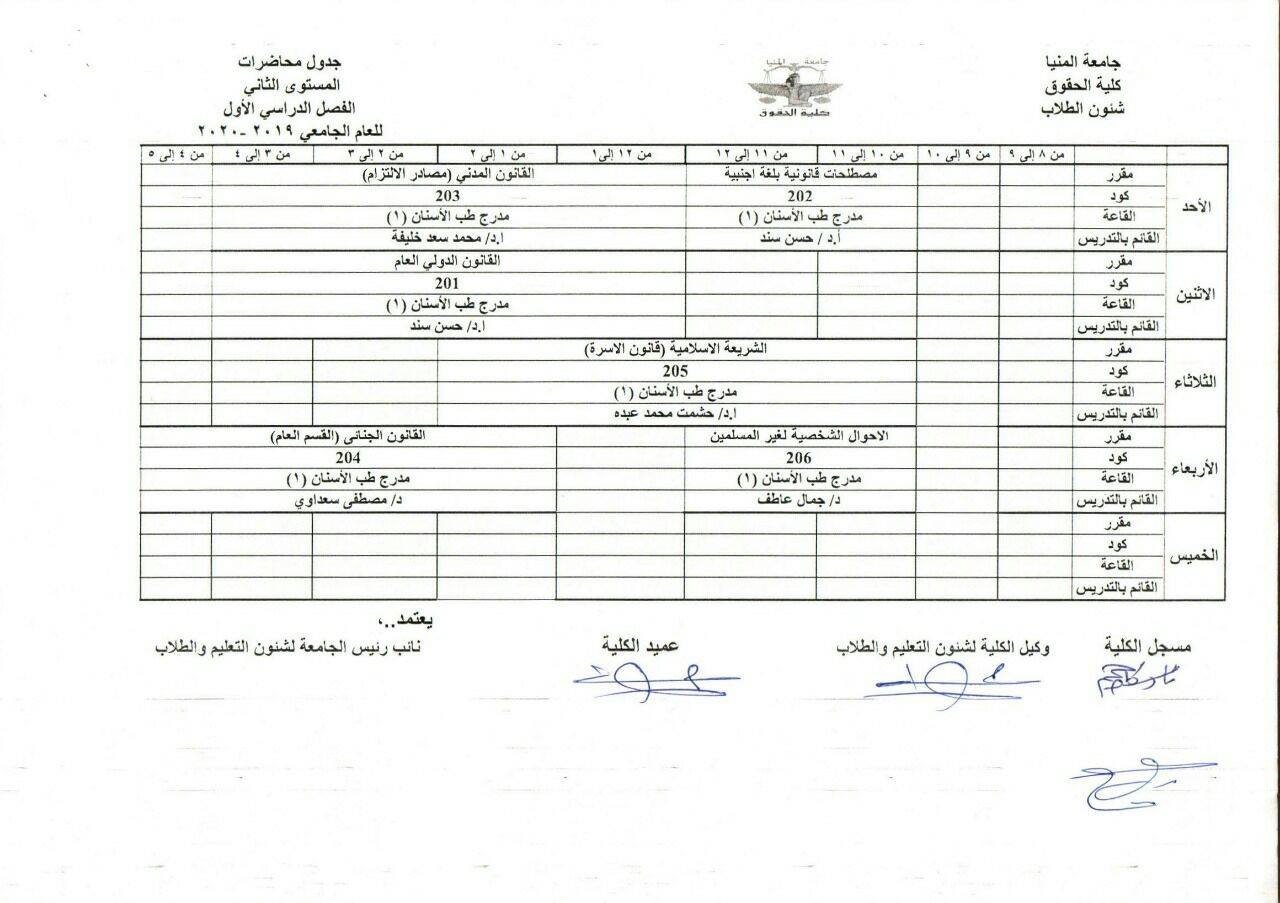 جامعة المنيا
كلية الحقوق
شئون الطلاب
جامعة المنيا
كلية الحقوق
جدول محاضرات
المستوى الثاني
الفصل الدراسي الأول
للعام الجامعي ٢٠١٩ -٢٠٢٠
من ٨ إلى ٩ من ٩ إلى ١٠ من ١٠ إلى ١١ من ١١ إلى ١٢ من ١٢ إلى١ من ١ إلى ٢ من ٢ إلى ٣ من ٣ إلى ٤ من ٤ إلى ٥
الأحد
مقرر مصطلحات قانونية بلغة اجنبية القانون المدني (مصادر الالتزام)
كود 202 203
القاعة مدرج طب الأسنان (١) مدرج طب الأسنان (١)
القائم بالتدريس أ.د / حسن سند ا.د/ محمد سعد خليفة
الاثنين
مقرر القانون الدولي العام
كود 201
القاعة مدرج طب الأسنان (١)
القائم بالتدريس ا.د/ حسن سند
الثلاثاء
مقرر الشريعة الاسلامية (قانون الاسرة)
كود 205
القاعة مدرج طب الأسنان (١)
القائم بالتدريس ا.د/ حشمت محمد عبده
الأربعاء
مقرر الاحوال الشخصية لغير المسلمين القانون الجنائى (القسم العام)
كود 206 204
القاعة مدرج طب الأسنان (١) مدرج طب الأسنان (١)
القائم بالتدريس د/ جمال عاطف د/ مصطفى سعداوي
الخميس
مقرر
كود
القاعة
القائم بالتدريس
يعتمد..،
مسجل الكلية وكيل الكلية لشئون التعليم والطلاب عميد الكلية نائب رئيس الجامعة لشئون التعليم والطلاب